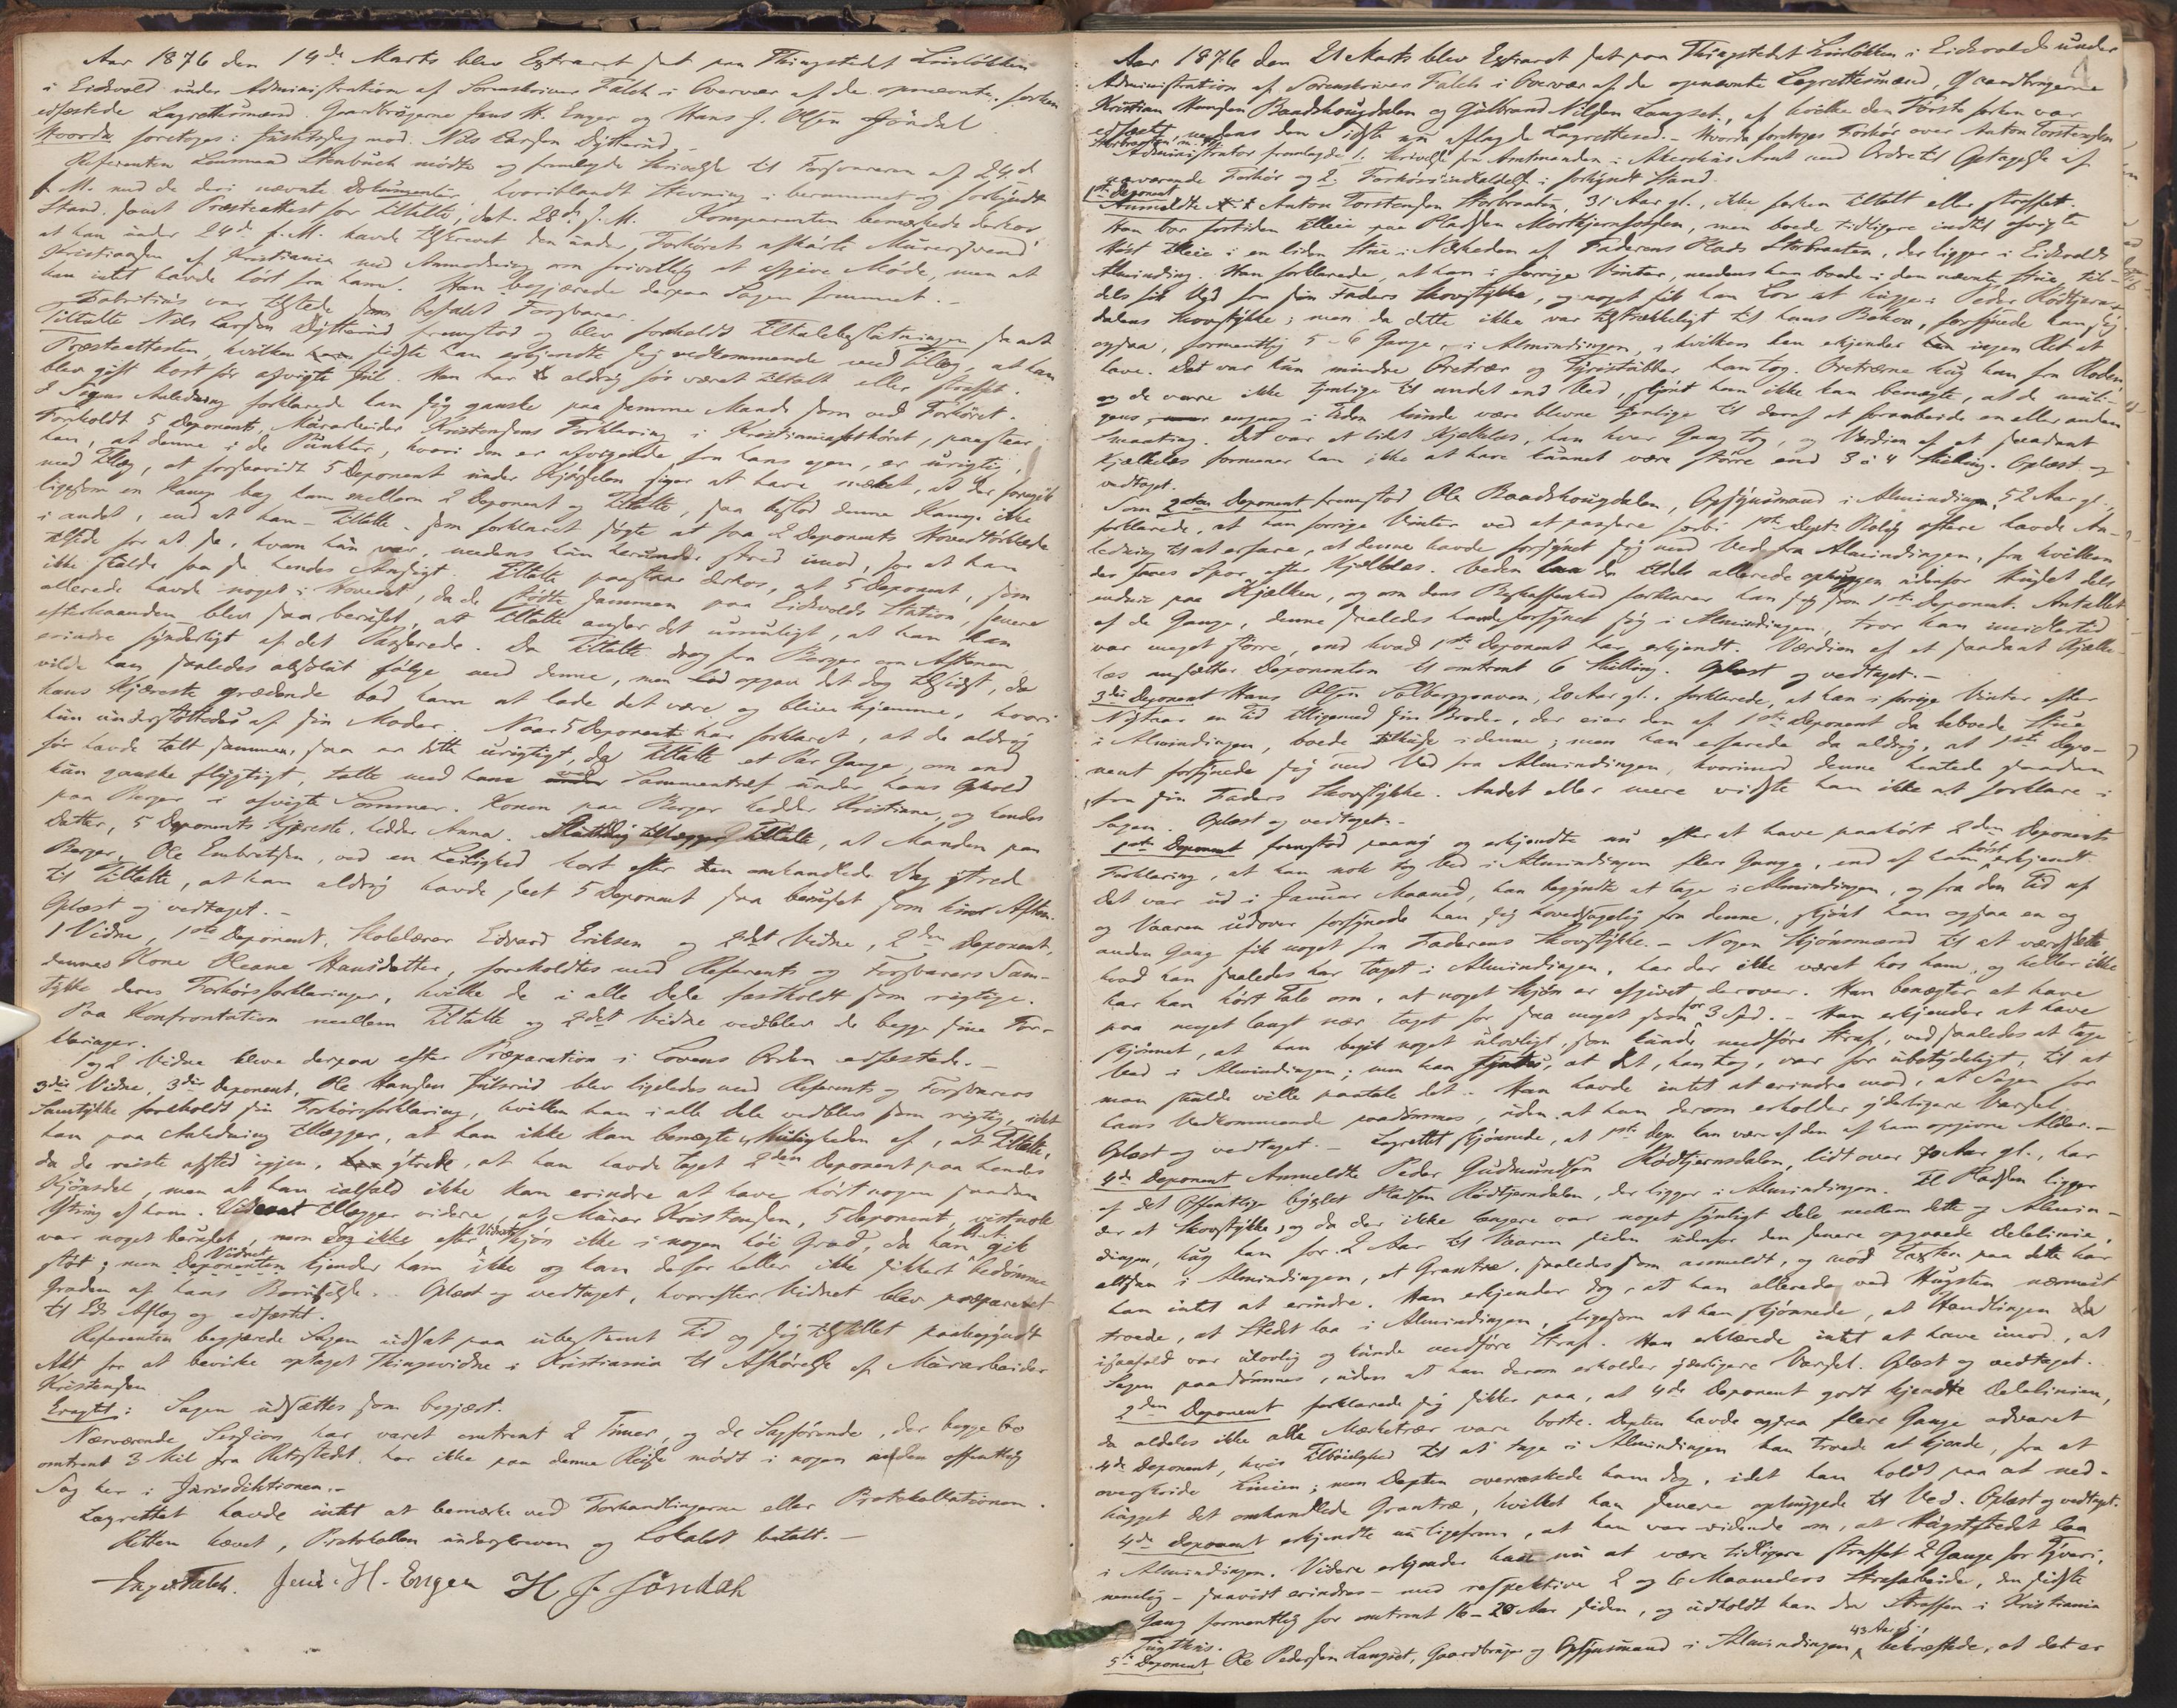 Aar 1876 den 14de Marts blev Extraret sat paa Thingstedet Linløkken
i Eidsvold under Administration af Sorenskriver Falch i Overvær af de opnævnte, forhen
edfæstede Lagrettesmænd Gaardbrugerne Jens H. Enger og Hans J. Olsen Jøndal
Hvorda foretoges: Justitssag mod Nils Larsen Dytterud.
Referenten Lensmand Stenbuch mødte og fremlagde Skrivelse til Forsvareren af 24de
f. M. med de deri nævnte Dokumenter, hvoriblandt Stevning i berammet og forkyndt
Stand, samt Præsteattest for Tiltalte, dat. 28de f. M. Komparenten bemærkede derhos,
at han under 24de f. M. havde tilskrevet den under Forhøret afhørte Murersvend
Kristiansen af Kristiania med Anmodning om frivillig at afgive Møde, men at
han intet havde hørt fra ham. Han begjærede derpaa Sagen fremmet.-
Fabritius var tilstede som befalet Forsvarer.
Tiltalte Nils Larsen Dytterud fremstod og blev foreholdt Tiltalebeslutningen samt
Præsteattesten, hvilken sidste han erkjendte sig vedkommende med Tillæg, at han
blev gift kort før afvigte Jul. Han har aldrig før været tiltalt eller straffet.
I Sagens Anledning forklarede han sig ganske paa samme Maade som ved Forhøret.
Foreholdt 5 Deponents, Murarbeider Kristensens Forklaring i Kristianiaforhøret, paastaar
han, at denne i de Punkter, hvori den er afvigende fra hans egen, er urigtig,
med Tillæg, at forsaavidt 5 Deponent under Kjørselen siger at have mærket, at der foregik
ligesom en Kamp bag ham mellem 2 Deponent og Tiltalte, saa bestod denne Kamp ikke
i andet, end at han - Tiltalte - som forklaret søgte at faa 2 Deponents Hovedtørklæde
tilside for at se, hvem hun var, medens hun herunder stred imod, for at han
ikke skulde faa se hendes Ansigt. Tiltalte paastaar derhos, at 5 Deponent, som
allerede havde noget i Hovedet, da de stødte sammen paa Eidsvolds Station, senere
efterhaanden blev saa beruset, at Tiltalte anser det umuligt, at han kan
erindre synderligt af det Passerede. Da Tiltalte drog fra Berger om Aftenen
vilde han saaledes absolut følge med denne, men opgav det dog tilsidst, da
hans Kjæreste grædende bad ham at lade det være og blive hjemme, hvori
hun understøttedes af sin Moder. Naar 5 Deponent har forklaret, at de aldrig
før havde talt sammen, saa er dette urigtigt, da Tiltalte et Par Gange, om end
kun ganske flygtigt, talte med ham under Sammentræf under hans Ophold
paa Berger i afvigte Sommer. Konen paa Berger hedder Kristiane, og hendes
Datter, 5 Deponents Kjæreste, hedder Anna. Sluttelig tillægger Tiltalte, at Manden paa
Berger, Ole Embretsen, ved en Leilighed kort efter den omhandlede Dag ytrede
til Tiltalte, at han aldrig havde seet 5 Deponent saa beruset som hin Aften.
Oplæst og vedtaget.-
1 Vidne, 1ste Deponent, Skolelærer Edvard Eriksen og 2det Vidne, 2den Deponent,
dennes Kone Oleane Hansdatter, foreholdtes med Referents og Forsvarers Sam-
tykke deres Forhørsforklaringer, hvilke de i alle Dele fastholdt som rigtige.
Paa Konfrontation mellem Tiltalte og 2det Vidne vedblev de begge sine For-
klaringer.
1 og 2 Vidne bleve derpaa efter Præparation i Lovens Orden edfæstede.-
3die Vidne, 3die Deponent, Ole Hansen Julsrud blev ligeledes med Referents og Forsvarers
Samtykke foreholdt sin Forhørsforklaring, hvilken han i alle Dele vedblev som rigtig, idet
han paa Anledning tillægger, at han ikke kan benægte Muligheden af, at Tiltalte,
da de reiste afsted igjen, ytrede, at han havde taget 2den Deponent paa hendes
Kjønsdel, men at han ialfald ikke kan erindre at have hørt nogen saadan
Ytring af ham. Vidnet tillægger videre, at Murer Kristensen, 5 Deponent, vistnok
var noget beruset, men dog ikke efter Vidnets Skjøn ikke i nogen høi Grad, da han bl. A. gik
støt; men Vidnet Deponenten kjender ham ikke og kan derfor heller ikke sikkert bedømme
Graden af hans Beruselse. Oplæst og vedtaget, hvorefter Vidnet blev præpareret
til Eds Aflæg og edfæstet.
Referenten begjærede Sagen udsat paa ubestemt Tid og sig tilstillet paabegyndt
Akt for at bevirke optaget Thingsvidne i Kristiania til Afhørelse af Murarbeider
Kristensen
Eragtet: Sagen udsættes som begjært.
Nærværende Session har varet omtrent 2 Timer, og de Sagførende, der begge bo
omtrent 3 Mil fra Retsstedet, har ikke paa denne Reise mødt i nogen anden offentlig
Sag her i Jurisdiktionen.-
Lagrettet havde intet at bemærke ved Forhandlingerne eller Protokollationen.
Retten hævet, Protokollen underskreven og Lokalet betalt.-
Falch. Jens H. Enger H J Jøndahl
Aar 1876 den 21 Marts blev Extraret sat paa Thingstedet Linløkken i Eidsvold under
Administration af Sorenskriver Falch i Overvær af de opnævnte Lagrettesmænd, Gaardbrugerne
Kristian Hansen Baadshougdalen og Gulbrand Nilsen Langset, af hvilke den Første forhen var
edfæstet, medens den Sidste nu aflagde Lagrettesed.- Hvorda foretoges Forhør over Anton Torstensen
Storbraaten m. fl.
Administrator fremlagde 1. Skrivelse fra Amtmanden i Akershus Amt med Ordre til Optagelse af
nærværende Forhør og 2. Forhørsindkaldelse i forkyndt Stand.
1ste Deponent
Anmeldte Anton Torstensen Storbraaten, 31 Aar gl., ikke forhen tiltalt eller straffet.
Han bor fortiden tilleie paa Pladsen Mortkjernsdalen, men boede tidligere indtil afvigte
Høst tilleie i en liden Stue i Nærheden af Faderens Plads Storbraaten, der ligger i Eidsvolds
Alminding. Han forklarede, at han i forrige Vinter, medens han boede i den nævnte Stue, til-
dels fik Ved fra sin Faders Skovstykke, og noget fik han Lov at hugge i Peder Rødtjerns-
dalens Skovstykke; men da dette ikke var tilstrækkeligt til hans Behov, forsynede han sig
ogsaa, formentlig 5-6 Gange, i Almindingen, i hvilken han erkjender ingen Ret at
have. Det var kun mindre Oretrær og Fyristubber han tog. Oretrærne hug han fra Roden,
og de vare ikke tjenlige til andet end Ved, skjønt han ikke kan benægte, at de muli-
gens engang i Tiden kunde være blevne tjenlige til deraf at forarbeide en eller anden
Smaating. Det var et lidet Kjælkelæs, han hver Gang tog, og Værdien af et saadant
Kjælkelæs formener han ikke at have kunnet være større end 3 à 4 Skilling. Oplæst og
vedtaget.
Som 2den Deponent fremstod Ole Baadshougdalen, Opsynsmand i Almindingen, 52 Aar gl.,
forklarede, at han forrige Vinter ved at passere forbi 1ste Depts Bolig oftere havde An-
ledning til at erfare, at denne havde forsynet sig med Ved fra Almindingen, fra hvilken
der saaes Spor efter Kjælkelæs. Veden laa da tildels allerede ophuggen udenfor Huset dels
endnu paa Kjælken, og om dens Beskaffenhed forklarer han sig som 1ste Deponent. Antallet
af de Gange, denne saaledes havde forsynet sig i Almindingen, tror han imidlertid
var meget større, end hvad 1ste Deponent har erkjendt. Værdien af et saadant Kjælke-
læs ansætter Deponenten til omtrent 6 Skilling. Oplæst og vedtaget.-
3die Deponent Hans Olsen Solberggraven, 20 Aar gl., forklarede, at han i forrige Vinter efter
Nytaar en Tid tilligemed sin Broder, der eier den af 1ste Deponent da beboede Stue
i Almindingen, boede tilhuse i denne; men han erfarede da aldrig, at 1ste Depo-
nent forsynede sig med Ved fra Almindingen, hvorimod denne hentede saadan
fra sin Faders Skovstykke. Andet eller mere vidste han ikke at forklare i
Sagen. Oplæst og vedtaget.-
1ste Deponent fremstod paany og erkjendte nu efter at have paahørt 2den Deponents
Forklaring, at han nok tog Ved i Almindingen flere Gange, end af ham først erkjendt.
Det var ud i Januar Maaned, han begyndte at tage i Almindingen, og fra den Tid af
og Vaaren udover forsynede han sig hovedsagelig fra denne, skjønt han ogsaa en og
anden Gang fik noget fra Faderens Skovstykke.- Nogen Skjønsmænd til at værdsætte
hvad han saaledes har taget i Almindingen, har der ikke været hos ham, og heller ikke
har han hørt Tale om, at noget Skjøn er afgivet derover. Han benægter at have
paa noget langt nær taget for saa meget som for 3 Spd.- Han erkjender at have
skjønnet, at han begik noget ulovligt, som kunde medføre Straf, ved saaledes at tage
Ved i Almindingen; men han syntes, at det, han tog, var for ubetydeligt, til at
man skulde ville paatale det.- Han havde intet at erindre mod, at Sagen for
hans Vedkommende paadømmes, uden at han derom erholder yderligere Varsel.
Oplæst og vedtaget.- Lagrettet skjønnede, at 1ste Dep. kan være af den af ham opgivne Alder.-
4de Deponent Anmeldte Peder Gudmundsen Rødtjernsdalen, lidt over 70 Aar gl., har
af det Offentlige bygslet Pladsen Rødtjerndalen, der ligger i Almindingen. Til Pladsen ligger
der et Skovstykke, og da der ikke længere var noget synligt Dele mellem dette og Almin-
dingen, hug han for 2 Aar til Vaaren siden udenfor den senere opgaaede Delelinie,
altsaa i Almindingen, et Grantræ, saaledes som anmeldt, og mod Taxten paa dette har
han intet at erindre. Han erkjender dog, at han allerede ved Hugsten nærmest
troede, at Stedet laa i Almindingen, ligesom at han skjønnede, at Handlingen da
isaafald var ulovlig og kunde medføre Straf. Han erklærede intet at have imod, at
Sagen paadømmes, uden at han derom erholder yderligere Varsel. Oplæst og vedtaget.
2den Deponent forklarede sig sikker paa, at 4de Deponent godt kjendte Delelinien,
da aldeles ikke alle Mærketrær vare borte. Depten havde ogsaa flere Gange advaret
4de Deponent, hvis Tilbøielighed til at tage i Almindingen han troede at kjende, fra at
overskride Linien; men Depten overraskede ham dog, idet han holdt paa at ned-
hugget det omhandlede Grantræ, hvilket han senere ophuggede til Ved. Oplæst og vedtaget.
4de Deponent erkjendte nu ligefrem, at han var vidende om, at Hugststedet laa
i Almindingen. Videre erkjender han nu at være tidligere straffet 2 Gange for Tyveri,
nemlig - saavidt erindres - med respektive 2 og 6 Maaneders Strafarbeide, den sidste
Gang formentlig for omtrent 16-20 Aar siden, og udholdt han da Straffen i Kristiania
Tugthus.
5te Deponent Ole Pedersen Langset, Gaardbruger og Opsynsmand i Almindingen, 43 Aar gl., bekræftede, at det er